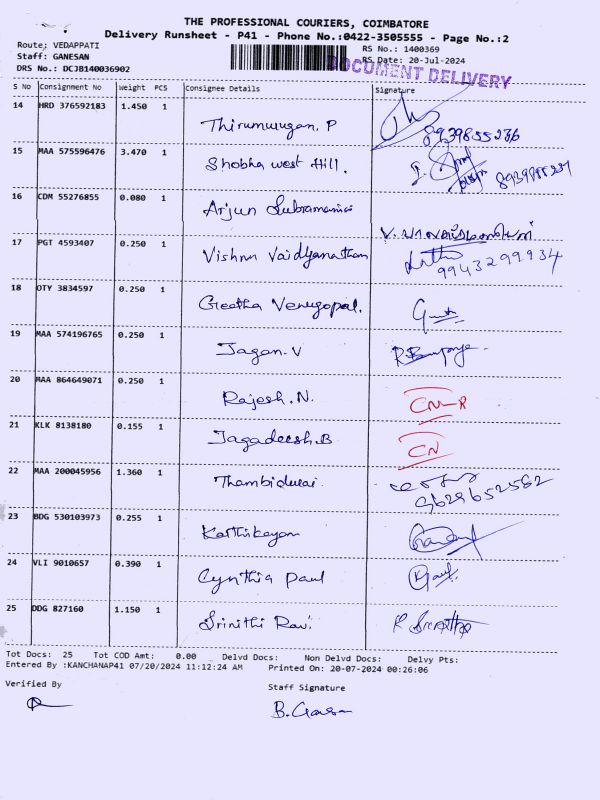 THE PROFESSIONAL COURIERS, COIMBATORE
Delivery Runsheet - P41 - Phone No.:0422-3505555 - Page No.:2
Route: VEDAPPATI RS No.: 1400369
Staff: GANESAN RS Date: 20-Jul-2024
DRS No.: DCJB140036902 DOCUMENT DELIVERY
S No Consignment No Weight PCS Consignee Details Signature
14 HRD 376592183 1.450 1 Thirumurugan. P 8939855236
15 MAA 575596476 3.470 1 Shobha west Hill.
16 CDM 55276855 0.080 1 Arjun Subramanian
17 PGT 4593407 0.250 1 Vishnu Vaidyanathan 9943299934
18 OTY 3834597 0.250 1 Geetha Venugopal.
19 MAA 574196765 0.250 1 Jagan. V
20 MAA 864649071 0.250 1 Rajesh. N. CN-R
21 KLK 8138180 0.155 1 Jagadeesh.B CN
22 MAA 200045956 1.360 1 Thambidurai 9629652562
23 BDG 530103973 0.255 1 Karthikeyan
24 VLI 9010657 0.390 1 Cynthia paul
25 DDG 827160 1.150 1 Srinithi Ravi
Tot Docs: 25 Tot COD Amt: 0.00 Delvd Docs: Non Delvd Docs: Delvy Pts:
Entered By :KANCHANAP41 07/20/2024 11:12:24 AM Printed On: 20-07-2024 00:26:06
Verified By Staff Signature